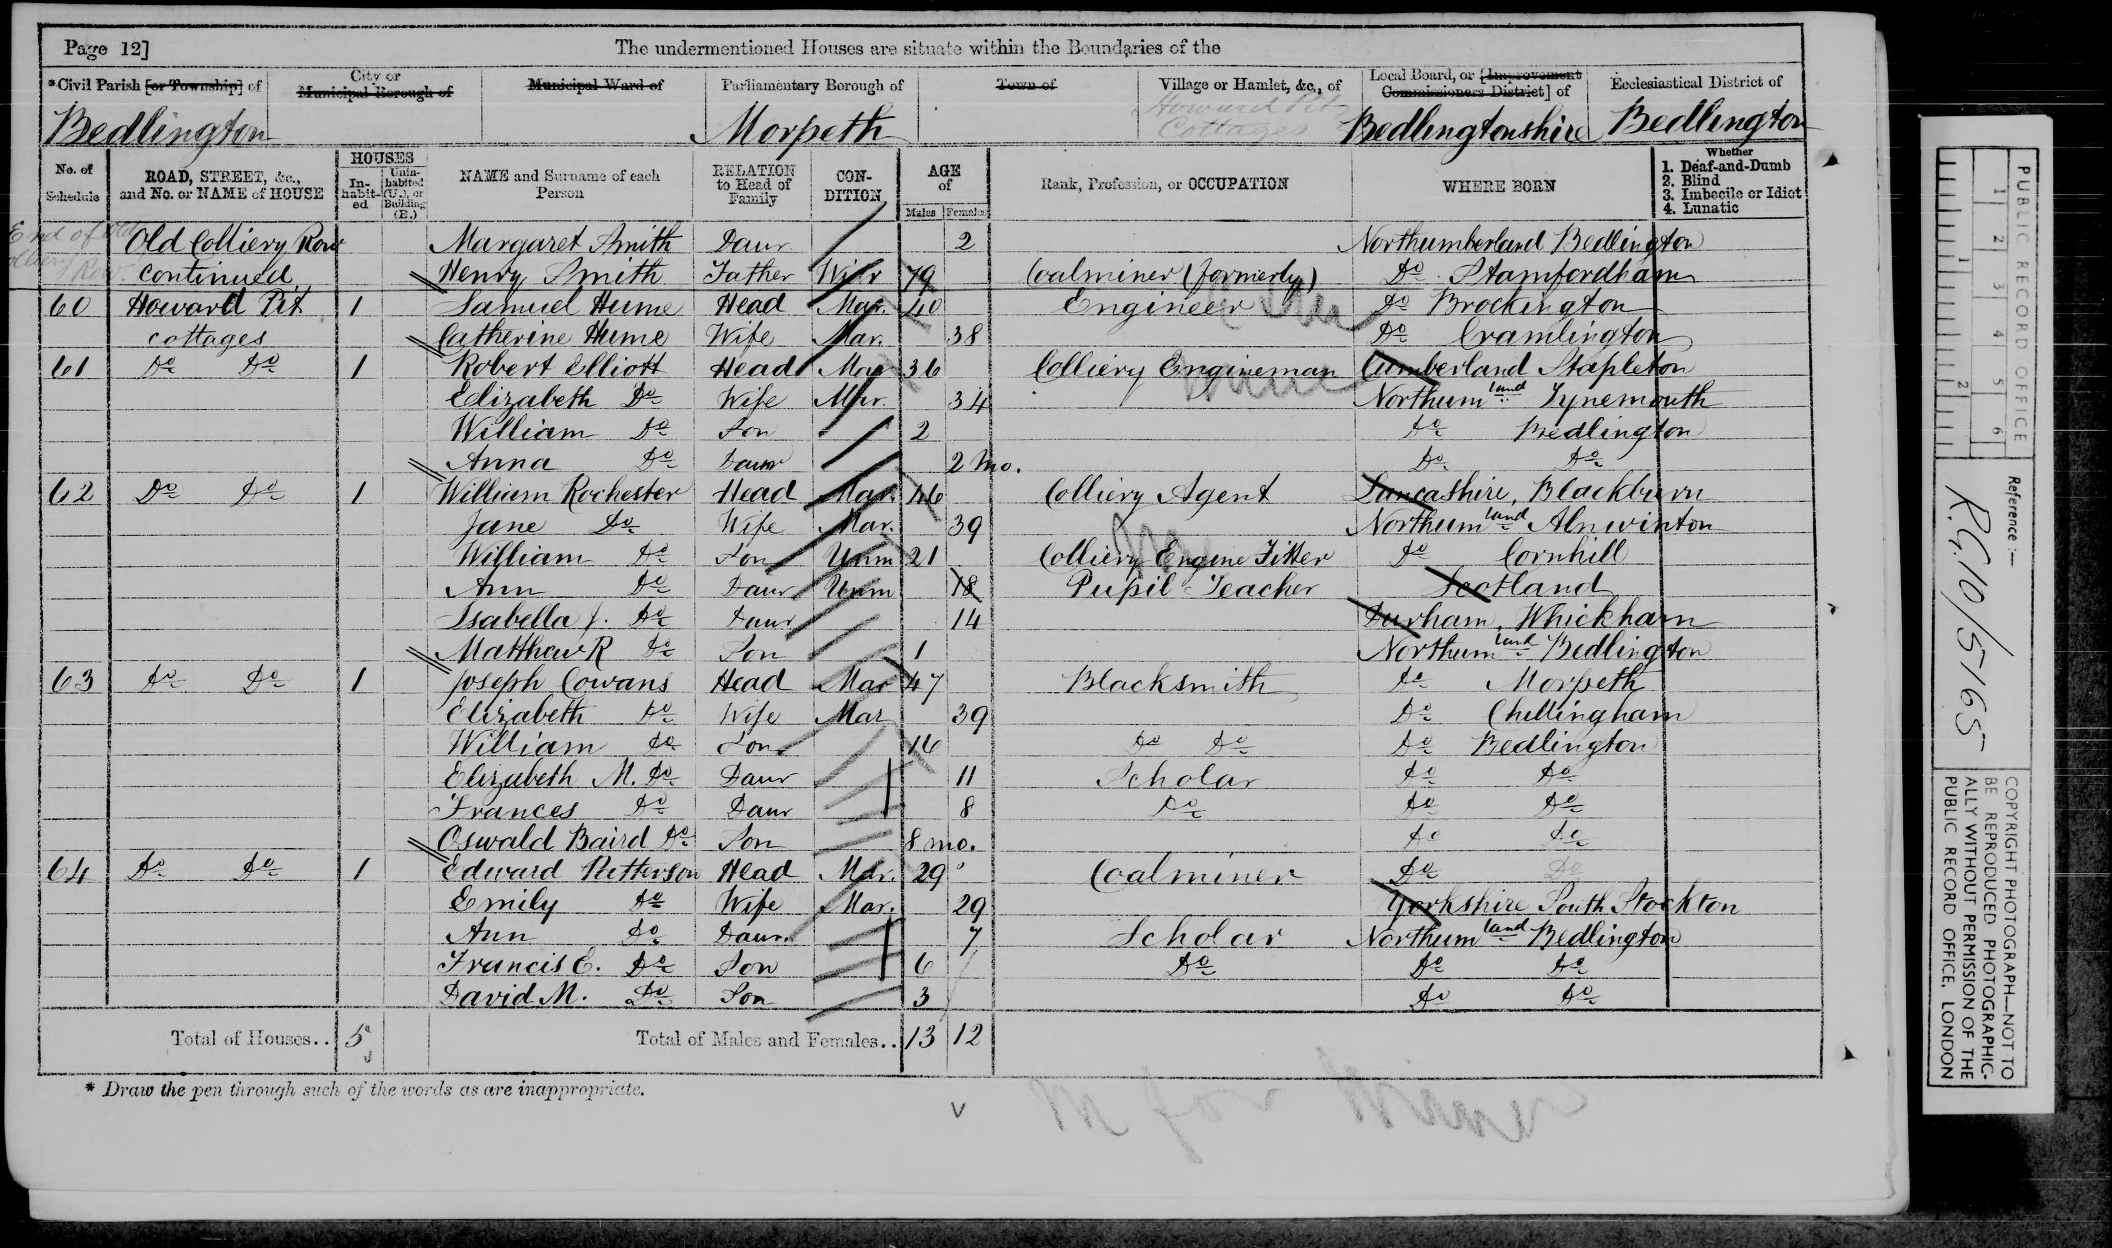 Page 12] The undermentioned Houses are situate within the Boundaries of the
*Civil Parish [or Township] of City or Municipal Borough of Municipal Ward of Parliamentary Borough of Town of Village or Hamlet, &c., of Local Board, or [Improvement Commissioners District] of Ecclesiastical District of
Bedlington Morpeth Howard Pit Cottages Bedlingtonshire Bedlington
No. of Schedule ROAD, STREET, &c., and No. or NAME of HOUSE HOUSES In-habit-ed Unin-habited (U.), or Building (B.) NAME and Surname of each Person RELATION to Head of Family CON-DITION AGE of Males Females Rank, Profession, or OCCUPATION WHERE BORN Whether 1. Deaf-and-Dumb 2. Blind 3. Imbecile or Idiot 4. Lunatic
End of Old Colliery Row
Old Colliery Row Margaret Smith Daur 2 Northumberland Bedlington
continued Henry Smith Father Widr 79 Coalminer (formerly) Do Stamfordham
60 Howard Pit 1 Samuel Hume Head Mar. 40 Engineer Do Brockington
cottages Catherine Hume Wife Mar. 38 Do Cramlington
61 Do Do 1 Robert Elliott Head Mar 36 Colliery Engineman Cumberland Stapleton
Elizabeth Do Wife Mar. 34 Northumland Tynemouth
William Do Son 2 Do Bedlington
Anna Do Daur 2 mo. Do Do
62 Do Do 1 William Rochester Head Mar. 46 Colliery Agent Lancashire, Blackburn
Jane Do Wife Mar. 39 Northumland Alnwinton
William Do Son Unm 21 Colliery Engine Fitter Do Cornhill
Ann Do Daur Unm 18 Pupil Teacher Scotland
Isabella J. Do Daur 14 Durham, Whickham
Matthew R Do Son 1 Northumland Bedlington
63 Do Do 1 Joseph Cowans Head Mar 47 Blacksmith Do Morpeth
Elizabeth Do Wife Mar 39 Do Chillingham
William Do Son 16 Do Do Do Bedlington
Elizabeth M. Do Daur 11 Scholar Do Do
Frances Do Daur 8 Do Do Do
Oswald Baird Do Son 8 mo. Do Do
64 Do Do 1 Edward Patterson Head Mar. 29 Coalminer Do Do
Emily Do Wife Mar. 29 Yorkshire South Stockton
Ann Do Daur. 7 Scholar Northumland Bedlington
Francis E. Do Son 6 Do Do Do
David M. Do Son 3 Do Do
Total of Houses.. 5 Total of Males and Females.. 13 12
* Draw the pen through such of the words as are inappropriate.
M for Miner
PUBLIC RECORD OFFICE
1 2 3 4 5 6
1 2
Reference :—
R.G. 10/5165
COPYRIGHT PHOTOGRAPH—NOT TO
BE REPRODUCED PHOTOGRAPHIC-
ALLY WITHOUT PERMISSION OF THE
PUBLIC RECORD OFFICE, LONDON